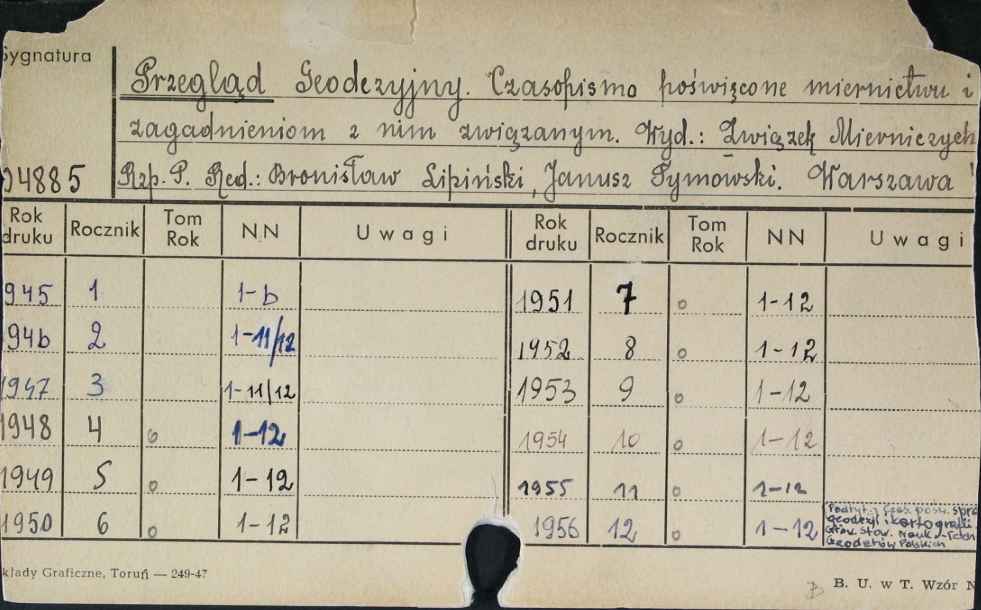 Sygnatura
Przegląd Geodezyjny. Czasopismo poświęcone miernictwu i
zagadnieniom z nim związanym. Wyd.: Związek Mierniczych
04885 Rzp. P. Red.: Bronisław Lipiński, Janusz Tymowski. Warszawa
Rok druku Rocznik Tom Rok NN Uwagi Rok druku Rocznik Tom Rok NN Uwagi
945 1 1-6 1951 7 o 1-12
946 2 1-11/12 1952 8 o 1-12
1947 3 1-11/12 1953 9 o 1-12
1948 4 o 1-12 1954 10 o 1-12
1949 5 o 1-12 1955 11 o 1-12
1950 6 o 1-12 1956 12 o 1-12 Podtyt.: Czas. pośw. spra
geodezji i kartografii
Stow. Nauk.-Techn
Geodetów Polskich
kłady Graficzne, Toruń — 249-47
B. U. w T. Wzór N